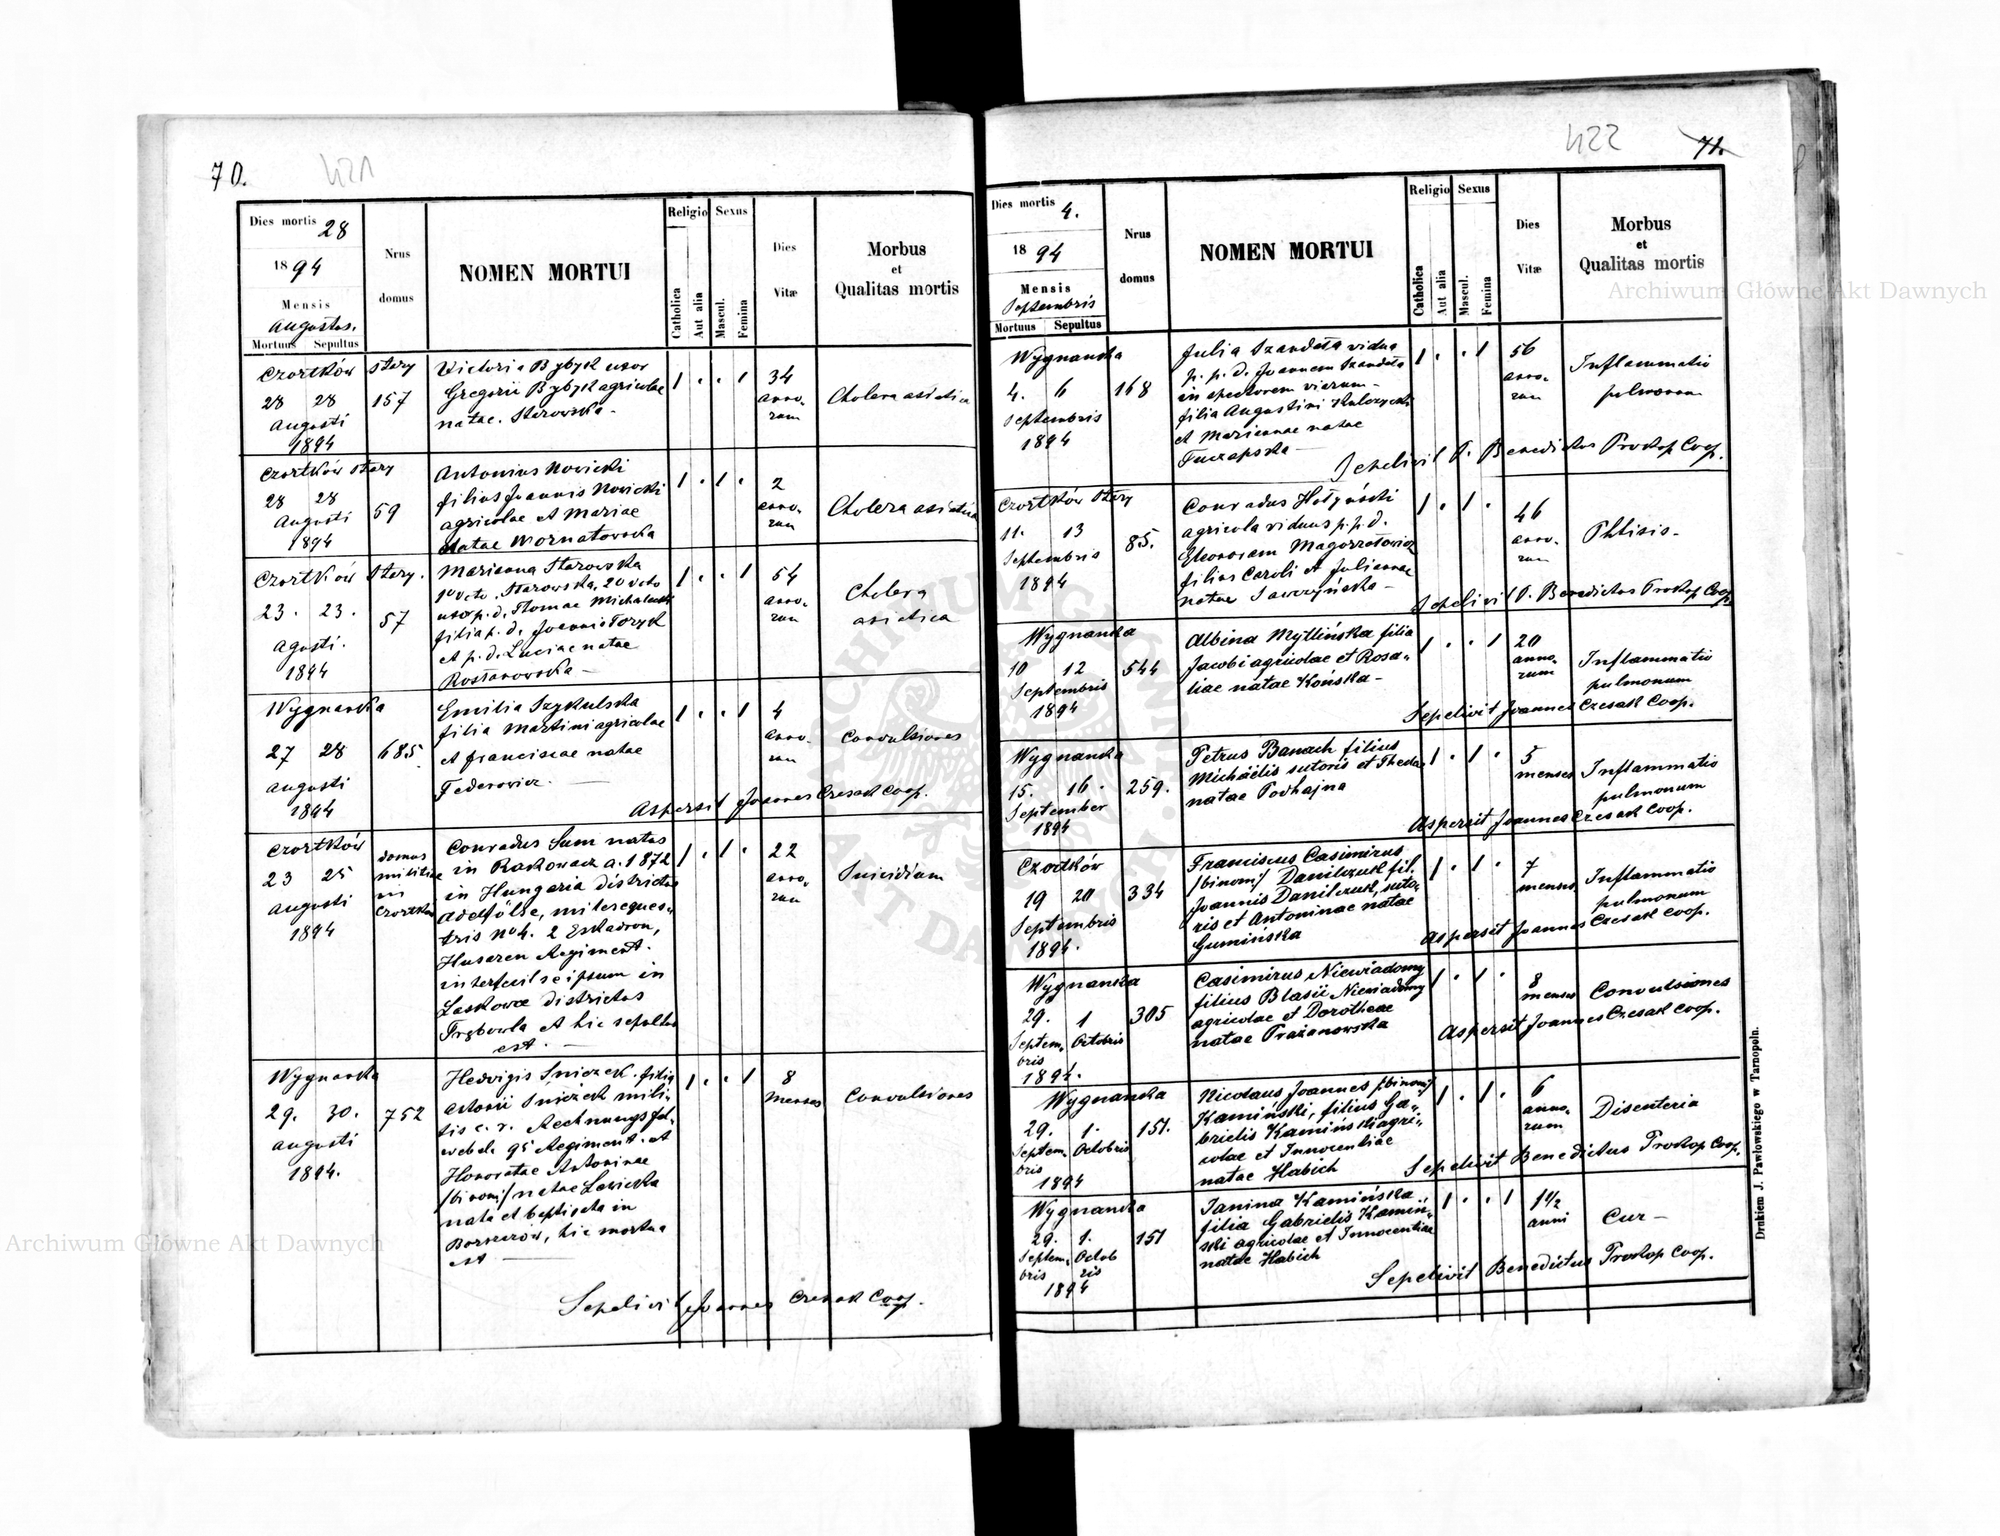 70.
421
Dies mortis 28
1894
Mensis
Augustus.
Mortuus Sepultus
Nrus
domus
NOMEN MORTUI
Religio
Catholica
Aut alia
Sexus
Mascul.
Femina
Dies
Vitæ
Morbus
et
Qualitas mortis
Czortków stary
28 28
Augusti
1894
157
Victoria Bybyk uxor
Gregorii Bybyk agricolae
natae. Starowska -
1 . . 1
34
anno-
rum
Cholera asiatica
Czortków stary
28 28
Augusti
1894
59
Antonius Nowicki
filius Joannis Nowicki
agricolae et Mariae
natae Wornatowska
1 . 1 .
2
anno-
rum
Cholera asiatica
Czortków Stary.
23. 23.
Agusti.
1894
57
Marianna Starowska
1º voto. Starowska, 2º voto
uxor p. d. Thomae Michalecki
filia p. d. Joannis Torzyk
et p. d. Luciae natae
Rossanowska -
1 . . 1
54
anno-
rum
Cholera
asiatica
Wygnanka
27 28
Augusti
1894
685.
Emilia Szykulska
filia Martini agricolae
et Franciscae natae
Federowicz. -
1 . . 1
4
anno-
rum
Convulsiones
Aspersit Joannes Czesak Coop.
Czortków
23 25
Augusti
1894
domus
militiae
in
Czortków
Conradus Sum natus
in Rakowacz a. 1872
in Hungaria districtus
Adelfölse, miles eques-
tris Nº 4. 2 Eskadron,
Husaren Regiment.
interfecit se ipsum in
Laskowce districtus
Trębowla et hic sepultus
est. -
1 . 1 .
22
anno-
rum
Suicidium
Wygnanka
29. 30.
Augusti
1894.
752
Hedvigis Śnieżek. filia
Antonii Śnieżek mili-
tis c. r. Rechnungsfel-
webel 95 Regiment. et
Honoratae Antoninae
/binom:/ natae Lewicka
nata et baptisata in
Borszczów, hic mortua
est -
1 . . 1
8
menses
Convulsiones
Sepelivit Joannes Czesak Coop.
422
71.
Dies mortis 4.
1894
Mensis
Septembris
Mortuus Sepultus
Nrus
domus
NOMEN MORTUI
Religio
Catholica
Aut alia
Sexus
Mascul.
Femina
Dies
Vitæ
Morbus
et
Qualitas mortis
Wygnanka
4. 6
Septembris
1894
168
Julia Szandała vidua
p. p. d. Joannem Szandała
inspectorem viarum -
filia Augustini Kulczycki
et Mariannae natae
Tuczapska -
1 . . 1
56
anno-
rum
Inflammatio
pulmonum
Sepelivit P. Benedictus Prokop Coop.
Czortków Stary
11. 13
Septembris
1894
85.
Conradus Hołyński
agricola viduus p. p. d.
Eleonoram Magorzatowicz
filius Caroli et Julianae
natae Sawczyńska -
1 . 1 .
46
anno-
rum
Phtisis -
Sepelivit P. Benedictus Prokop Coop.
Wygnanka
10 12
Septembris
1894
544
Albina Myllińska filia
Jacobi agricolae et Rosa-
liae natae Końska -
1 . . 1
20
anno-
rum
Inflammatio
pulmonum
Sepelivit Joannes Czesak Coop.
Wygnanka
15. 16.
September
1894
259.
Petrus Banach filius
Michaëlis sutoris et Theclae
natae Podhajna
1 . 1 .
5
menses
Inflammatio
pulmonum
Aspersit Joannes Czesak Coop.
Czortków
19 20
Septembris
1894.
334
Franciscus Casimirus
/binom:/ Danilczuk fil.
Joannis Danilczuk, suto-
ris et Antoninae natae
Gumińska
1 . 1 .
7
menses
Inflammatio
pulmonum
Aspersit Joannes Czesak Coop.
Wygnanka
29. 1
Septem- Octobris
bris
1894.
305
Casimirus Niewiadomy
filius Blasii Niewiadomy
agricolae et Dorotheae
natae Prażanowska
1 . 1 .
8
menses
Convulsiones
Aspersit Joannes Czesak Coop.
Wygnanka
29. 1.
Septem- Octobris
bris
1894
151.
Nicolaus Joannes /binom:/
Kamiński, filius Ga-
brielis Kamiński agri-
colae et Innocentiae
natae Habich
1 . 1 .
6
anno-
rum
Disenteria
Sepelivit Benedictus Prokop Coop.
Wygnanka
29. 1.
Septem- Octob
bris ris
1894
151
Janina Kamińska
filia Gabrielis Kamiń-
ski agricolae et Innocentiae
natae Habich
1 . . 1
1 1/2
anni
Cur -
Sepelivit Benedictus Prokop Coop.
Drukiem J. Pawłowskiego w Tarnopolu.
Archiwum Główne Akt Dawnych
Archiwum Główne Akt Dawnych
ARCHIWUM GŁÓWNE AKT DAWNYCH